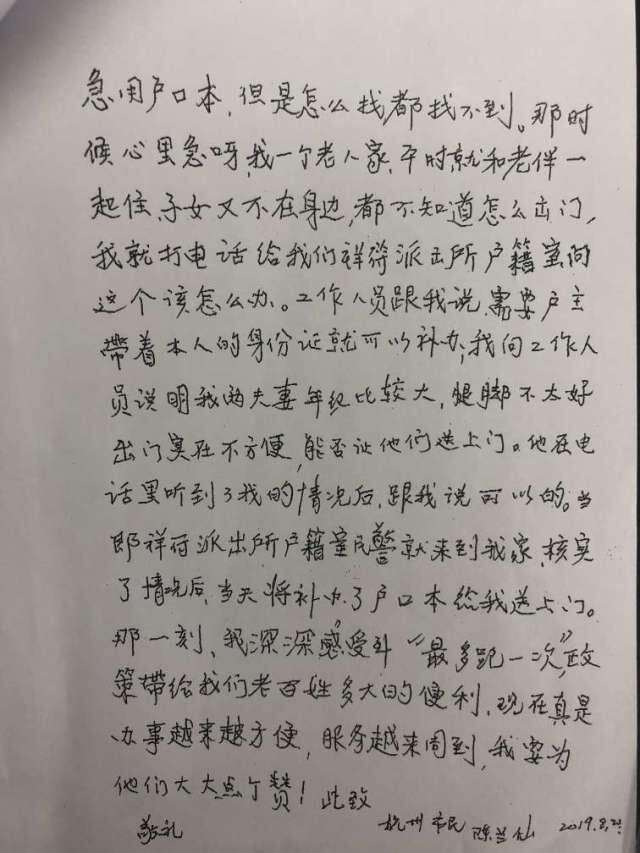 急用户口本，但是怎么找都找不到。那时
候心里急呀，我一个老人家，平时就和老伴一
起住，子女又不在身边，都不知道怎么出门，
我就打电话给我们祥符派出所户籍室问
这个该怎么办。工作人员跟我说，需要户主
带着本人的身份证就可以补办，我向工作人
员说明我两夫妻年纪比较大，腿脚不太好
出门实在不方便，能否让他们送上门。他在电
话里听到了我的情况后，跟我说可以的。当
即祥符派出所户籍室民警就来到我家，核实
了情况后，当天将补办了户口本给我送上门。
那一刻，我深深感受到“最多跑一次”政
策带给我们老百姓多大的便利，现在真是
办事越来越方便，服务越来周到，我要为
他们大大点个赞！此致
敬礼 杭州市民 陈兰仙 2019.8.